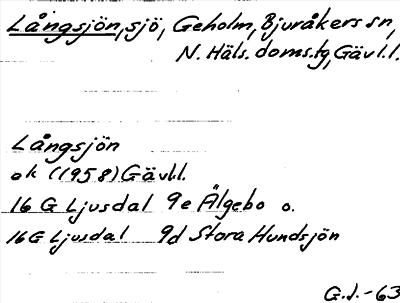 Långsjön, sjö, Geholm, Bjuråkers sn,
N. Häls. doms.tg, Gävl.l.
Långsjön
ek (1958) Gävl.l.
16 G Ljusdal 9e Älgebo o.
16 G Ljusdal 9d Stora Hundsjön
G.J.-63